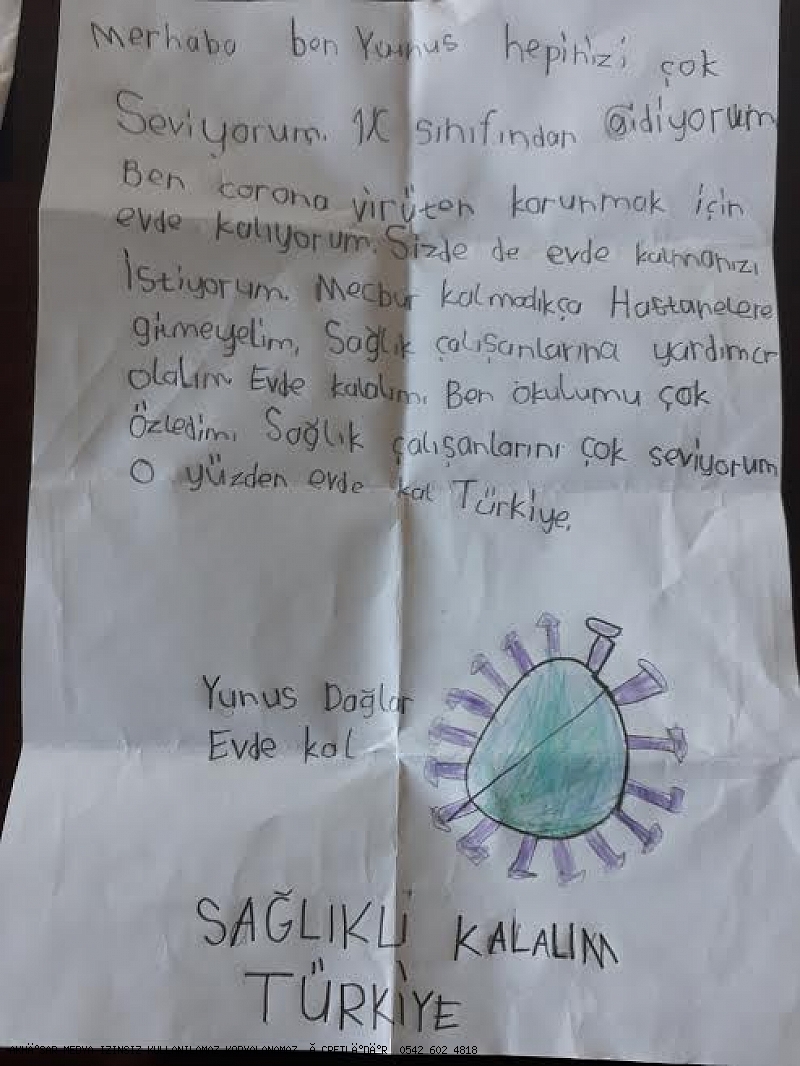 Merhaba ben Yunus hepinizi çok
Seviyorum. 1/C sınıfından @idiyorum
Ben corona virüten korunmak için
evde kalıyorum. Sizde de evde kalmanızı
İstiyorum. Mecbur kalmadıkça Hastanelere
gitmeyelim, Sağlık çalışanlarına yardımcı
olalım Evde kalalım. Ben okulumu çok
Özledim. Sağlık çalışanlarını çok seviyorum
O yüzden evde kal Türkiye.
Yunus Dağlar
Evde kal
SAĞLIKLİ KALALIM
TÜRKİYE
MEDYA IZINSIZ KULLANILAMAZ KOPYALANAMAZ 0542 602 4818